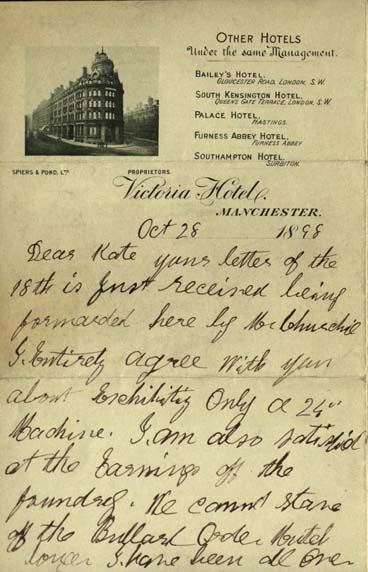 OTHER HOTELS
Under the same Management.
BAILEY'S HOTEL,
GLOUCESTER ROAD, LONDON, S.W.
SOUTH KENSINGTON HOTEL,
QUEENS GATE TERRACE, LONDON, S.W.
PALACE HOTEL,
HASTINGS.
FURNESS ABBEY HOTEL,
FURNESS ABBEY
SOUTHAMPTON HOTEL,
SURBITON.
SPIERS & POND, LTD
PROPRIETORS.
Victoria Hotel,
MANCHESTER.
Oct 28 1898
Dear Kate your letter of the
18th is Just received being
forwarded here by Mr Churchill
I Entirely agree with you
about Exhibiting Only a 24"
Machine. I am also satisfied
at the Earnings off the
foundrey. We cannot stave
off the Bullard Order Much
longer I have been all over